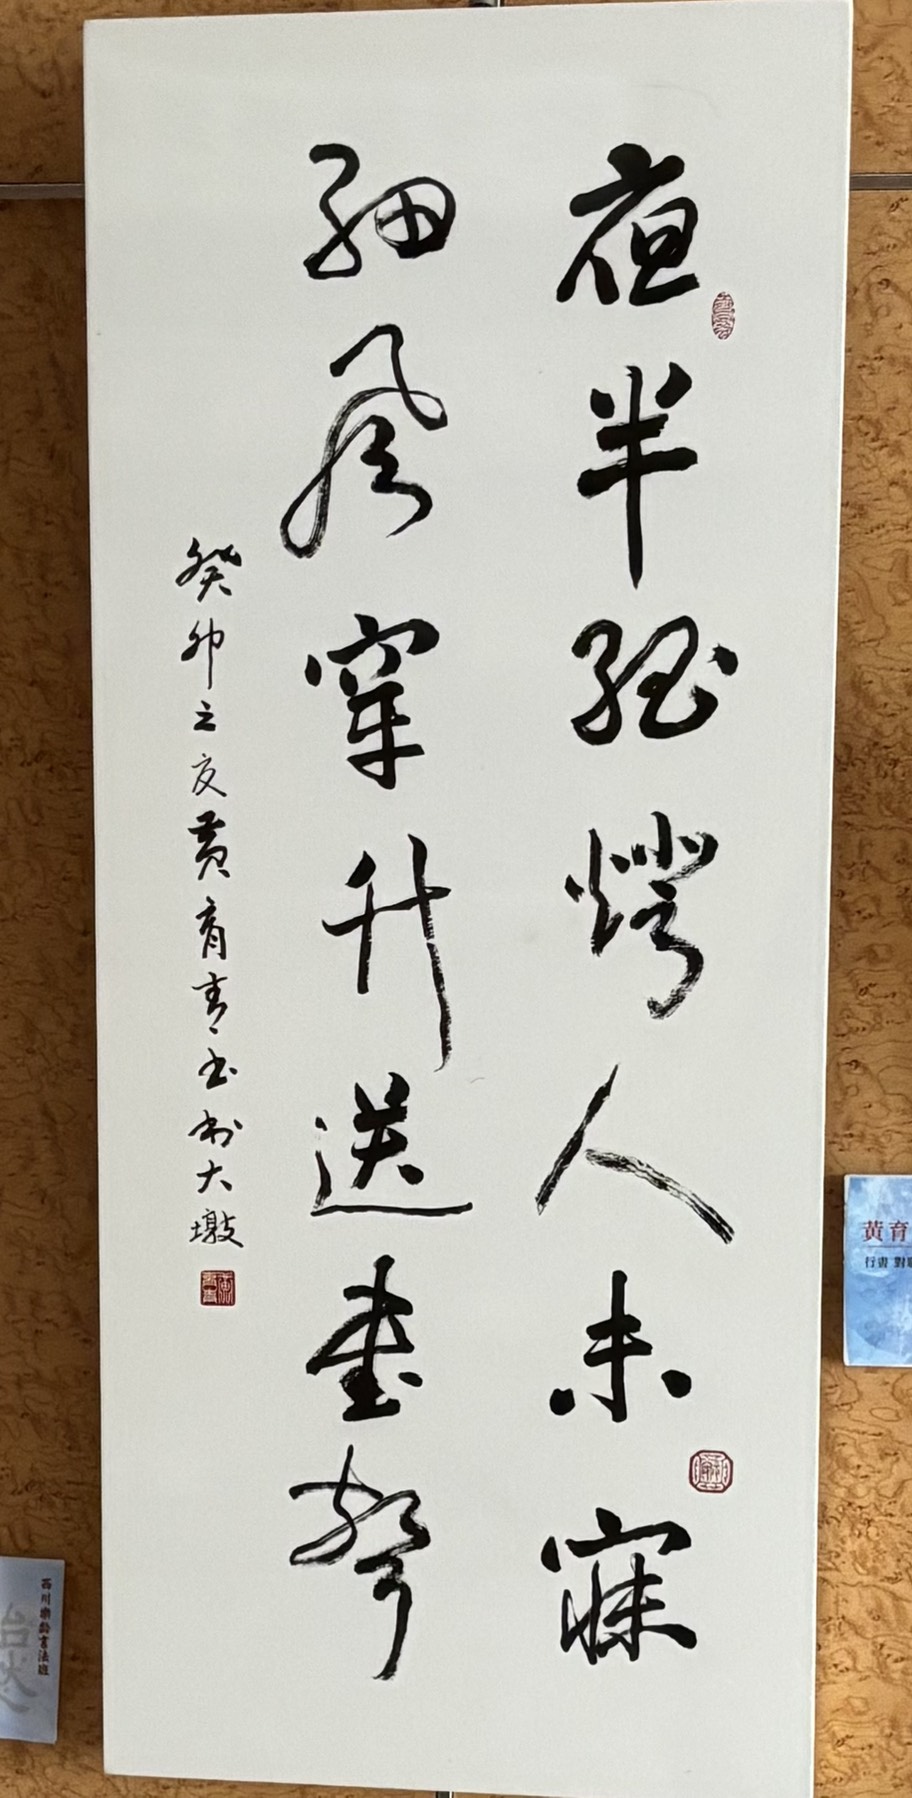 夜半孤燈人未寐
細風穿竹送書聲
癸卯之夏黃育青書於大墩
黃育
行書 對
西川樂齡書法班